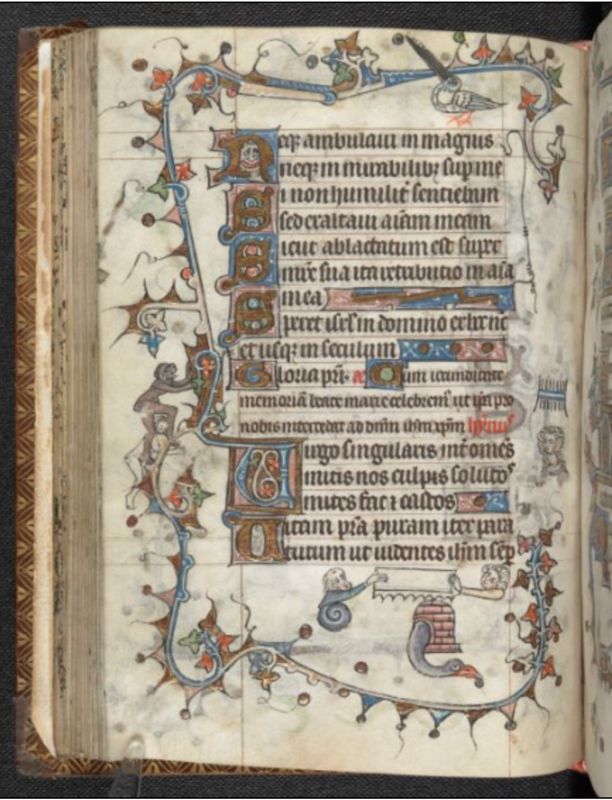 Neq; ambulaui in magnis
neq; in mirabilib; sup me
Si non humilit̉ sentiebam
sed exaltaui aīam meam
Sicut ablactatum est supẽ
mr̄e sua ita retributio in aīa
mea
Speret isrl̄ in domino ex hoc nc̄
et usq; in seculum
Gloria pr̄i. a Cum iocunditate
memoriā beate marie celebrem᷒ ut ip̄a pro
nobis intercedat ad dn̄m ih̄m xp̄m ympn᷒
Uirgo singularis int̉ om̄es
mitis nos culpis soluto᷒
mites fac ⁊ castos
Uitam pr̄a puram iter para
tutum ut uidentes ih̄m sēp